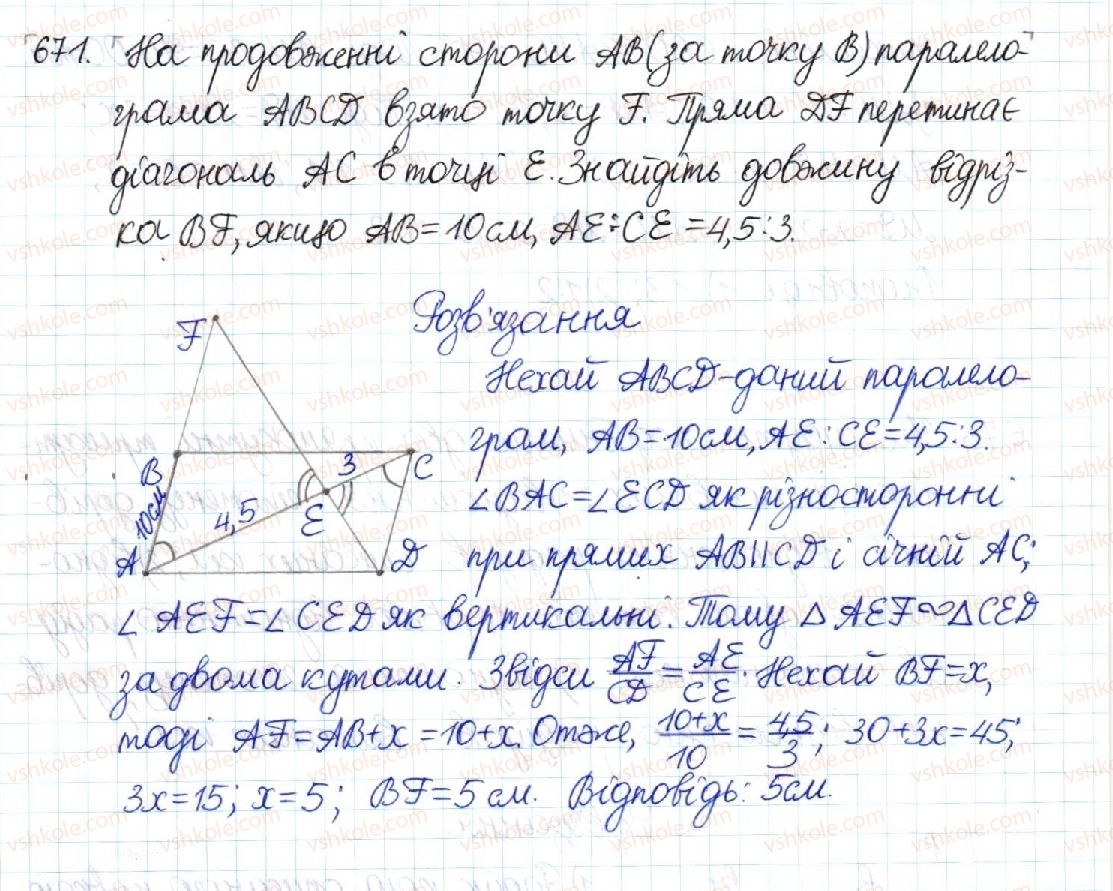 671. На продовженні сторони AB (за точку B) паралело-
грама ABCD взято точку F. Пряма DF перетинає
діагональ AC в точці E. Знайдіть довжину відріз-
ка BF, якщо AB=10см, AE:CE=4,5:3.
Розв'язання
F
Нехай ABCD-даний паралело-
грам, AB=10см, AE:CE=4,5:3.
B
3
C
∠BAC=∠ECD як різносторонні
10см
4,5
E
A
D
при прямих AB||CD і січній AC;
∠AEF=∠CED як вертикальні. Тому △AEF∾△CED
за двома кутами. Звідси AF/CD = AE/CE. Нехай BF=x,
тоді AF=AB+x=10+x. Отже, (10+x)/10 = 4,5/3; 30+3x=45;
3x=15; x=5; BF=5см. Відповідь: 5см.